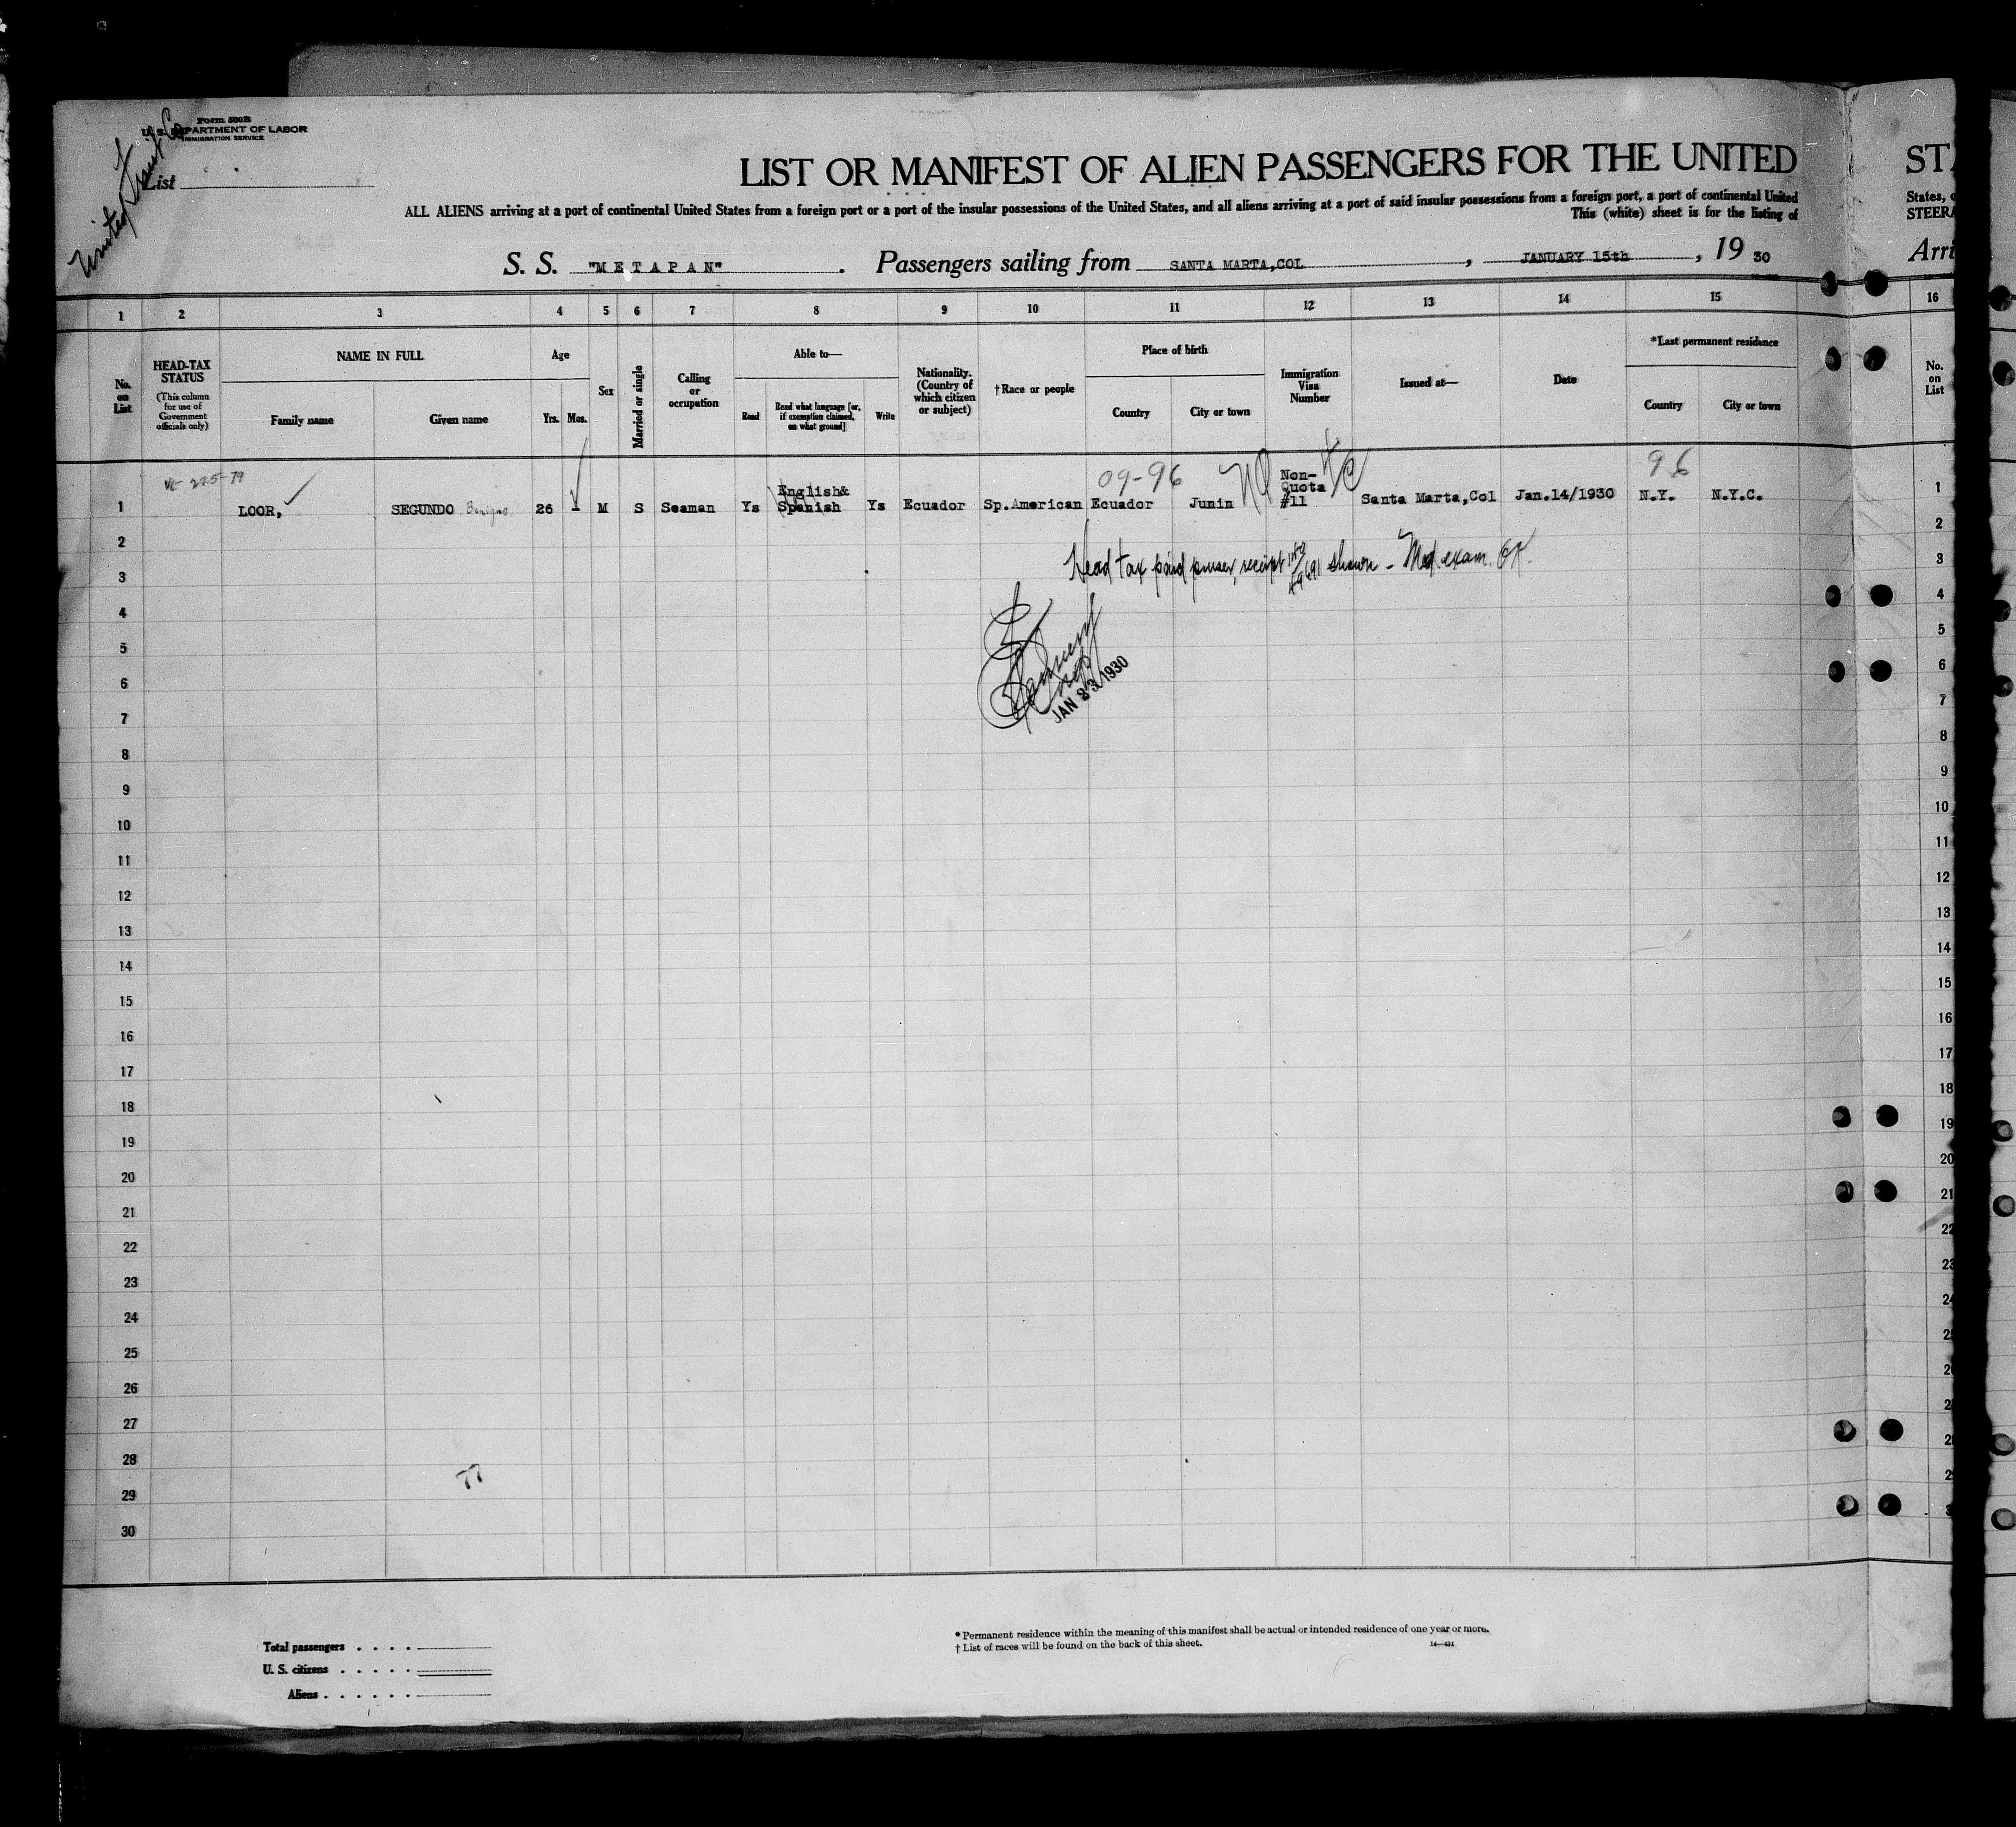 Form 500B
U. S. DEPARTMENT OF LABOR
IMMIGRATION SERVICE
United Fruit Co
List
LIST OR MANIFEST OF ALIEN PASSENGERS FOR THE UNITED
ALL ALIENS arriving at a port of continental United States from a foreign port or a port of the insular possessions of the United States, and all aliens arriving at a port of said insular possessions from a foreign port, a port of continental United
This (white) sheet is for the listing of
S. S. "METAPAN". Passengers sailing from SANTA MARTA,COL, JANUARY 15th, 19 30
STA
States, o
STEERA
Arri
1 2 3 4 5 6 7 8 9 10 11 12 13 14 15 16
No. on List
HEAD-TAX STATUS
(This column for use of Government officials only)
NAME IN FULL
Family name
Given name
Age
Yrs.
Mos.
Sex
Married or single
Calling or occupation
Able to—
Read
Read what language [or, if exemption claimed, on what ground]
Write
Nationality. (Country of which citizen or subject)
†Race or people
Place of birth
Country
City or town
Immigration Visa Number
Issued at—
Date
*Last permanent residence
Country
City or town
No. on List
09-96
96
1 LOOR, SEGUNDO Benigno 26 - M S Seaman Ys English& Spanish Ys Ecuador Sp.American Ecuador Junin Non-Quota #11 Santa Marta,Col Jan.14/1930 N.Y. N.Y.C. 1
2 2
Head tax paid purser, receipt shown - Med. exam. OK.
3 3
4 4
5 5
6 6
JAN 23 1930
7 7
8 8
9 9
10 10
11 11
12 12
13 13
14 14
15 15
16 16
17 17
18 18
19 19
20 20
21 21
22 22
23 23
24 24
25
26
27
28
77
29
30
Total passengers . . . .
U. S. citizens . . . . .
Aliens . . . . . .
* Permanent residence within the meaning of this manifest shall be actual or intended residence of one year or more.
† List of races will be found on the back of this sheet.
14—431